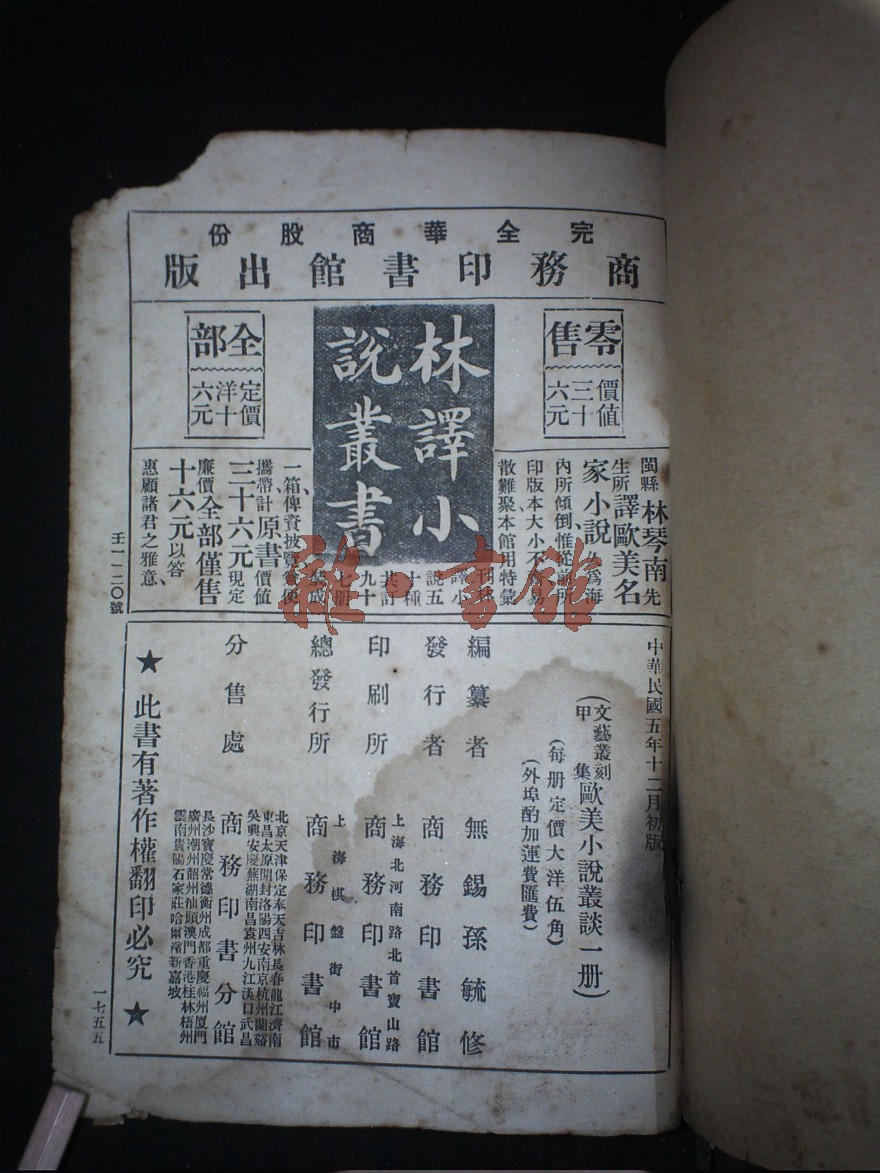 完全華商股份
商務印書館出版
零售
價值
三十
六元
林譯小
說叢書
全部
定價
洋十
六元
閩縣林琴南先
生所譯歐美名
家小說久為海
內所傾倒惟從前所
印版本大小不
散難聚本館用特彙
說五
十種
共訂
九十
七册
一箱俾資披
攜幣計原書價值
三十六元現定
廉價全部僅售
十六元以答
惠顧諸君之雅意、
壬一一二〇號
中華民國五年十二月初版
(文藝叢刻
甲集
歐美小說叢談一册)
(每册定價大洋伍角)
(外埠酌加運費匯費)
編纂者 無錫孫毓修
發行者 商務印書館
印刷所 上海北河南路北首寶山路
商務印書館
總發行所 上海棋盤街中市
商務印書館
分售處 北京天津保定奉天吉林長春龍江濟南
東昌太原開封洛陽西安南京杭州蘭谿
吳興安慶蕪湖南昌袁州九江漢口武昌
商務印書分館
長沙寶慶常德衡州成都重慶福州厦門
廣州潮州韶州汕頭澳門香港桂林梧州
雲南貴陽石家莊哈爾濱新嘉坡
★此書有著作權翻印必究★
一七五五
雜·書館